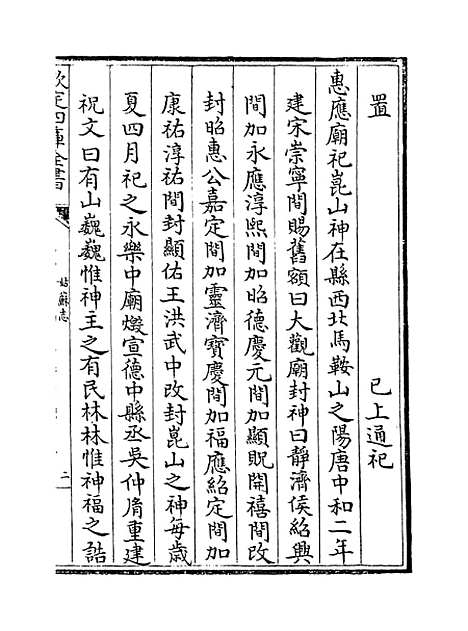 置　　　　　　　已上通祀
惠應廟祀崑山神在縣西北馬鞍山之陽唐中和二年
建宋崇寧間賜舊額曰大觀廟封神曰靜濟侯紹興
間加永應淳熙間加昭德慶元間加顯貺開禧間改
封昭惠公嘉定間加靈濟寶慶間加福應紹定間加
康祐淳祐間封顯佑王洪武中改封崑山之神每歲
夏四月祀之永樂中廟燬宣德中縣丞吳仲郋重建
祝文曰有山巍巍惟神主之有民林林惟神福之誥
欽定四庫全書
姑蘇志